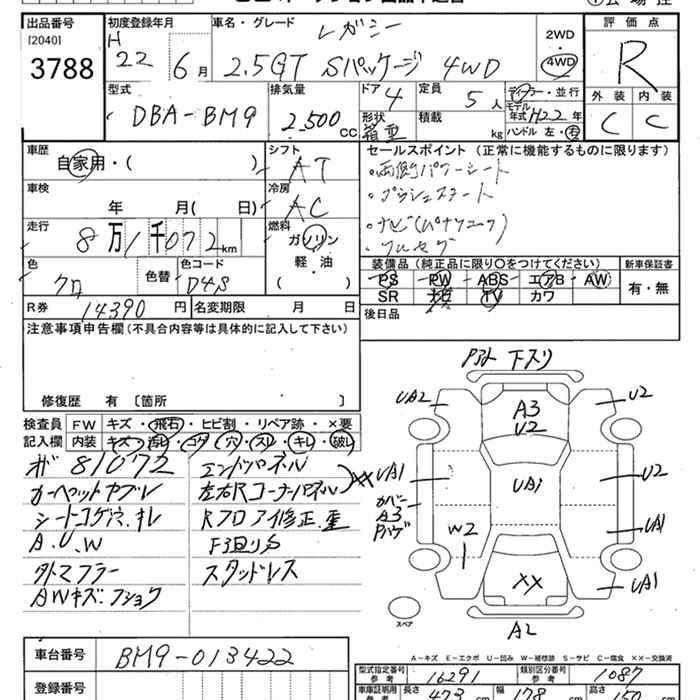 出品番号
[2040]
3788
初度登録年月
H
22 6月
車名・グレード
レガシー
2.5GT Sパッケージ 4WD
2WD
4WD
評価点
R
型式
DBA-BM9
排気量
2,500cc
ドア
4
形状
箱型
定員
5人
積載
kg
ディーラー・並行
モデル年式 H22年
ハンドル 左・右
外装 内装
C C
車歴
自家用・( )
シフト
AT
セールスポイント (正常に機能するものに限ります)
・両側パワーシート
・プッシュスタート
・ナビ(パナソニック)
・フルセグ
車検
年 月(日)
冷房
AC
走行
8万1千072km
燃料
ガソリン
軽・油
( )
色
クロ
色替
色コード
D4S
装備品 (純正品に限り○をつけてください)
PS PW ABS エアB AW
SR ナビ TV カワ
新車保証書
有・無
R券 14390円
名変期限 月 日
後日品
注意事項申告欄(不具合内容等は具体的に記入して下さい)
修復歴 有 〔箇所 〕
検査員記入欄
FW キズ・飛石・ヒビ割・リペア跡・×要
内装 キズ・汚レ・コゲ・穴・スレ・キレ・破レ
メーター 81072
カーペットヤブレ
シートコゲ穴、キレ
A.U.W
外マフラー
AWキズ・フショク
エンドパネル
左右Rコーナーパネル XX
Rフロア修正、重
F3回りS
スタッドレス
下スリ
A3
U2
UA2
U2
UA1
U2
カバー
A3
UA1
UA1
W2
UA1
XX
A2
スペア
A-キズ E-エクボ U-凹み W-補修跡 S-サビ C-腐食 XX-交換済
車台番号
BM9-013422
登録番号
型式指定番号
参考
16291
類別区分番号
参考
1087
車庫証明用
参考
長さ 473 cm
幅 178 cm
高さ 150 cm